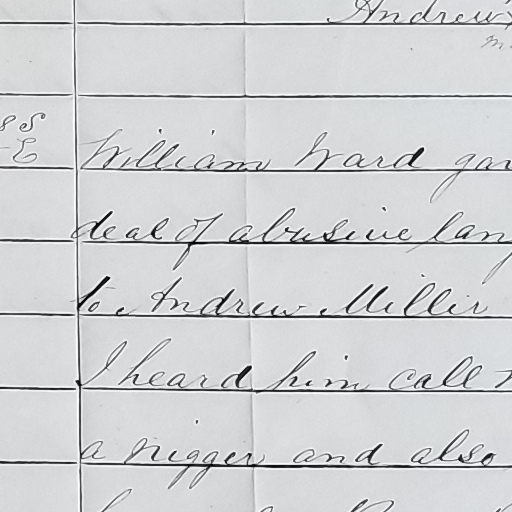 Andrew
8 S
E
William Ward gav
deal of abusive lang
to Andrew Miller
I heard him call
a nigger and also